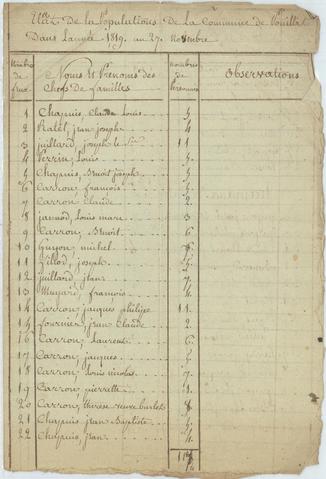 Etat De la Populations De la Commune de
Dans Lannée 1819. au 27. Novembre
Nombre de feux
Noms et Prenoms des Chefs De familles
nombres de Personnes
Observations
1 Chapuis, Claude Louis 5
2 Ratel, jean joseph 4
3 juillard, joseph le 11
4 Perrin, Louis 5
5 Chapuis, Benoit joseph 5
6 Carron, françois 5
7 Carron, Claude 2
8 jannod, Louis marie 3
9 Carron, Benoit 6
10 Guyon, michel 8
11 Fillod, joseph
12 juillard, jean 7
13 Mugard, françois 4
14 Carron, jacques philipe 11
15 fournier, jean Claude 2
16 Carron, Laurent 6
17 Carron, jacques 5
18 Carron, Louis nicolas 7
19 Carron, pierrette 1
20 Carron, therese veuve 8
21 Chapuis, jean Baptiste 5
22 Chapuis, jean 4